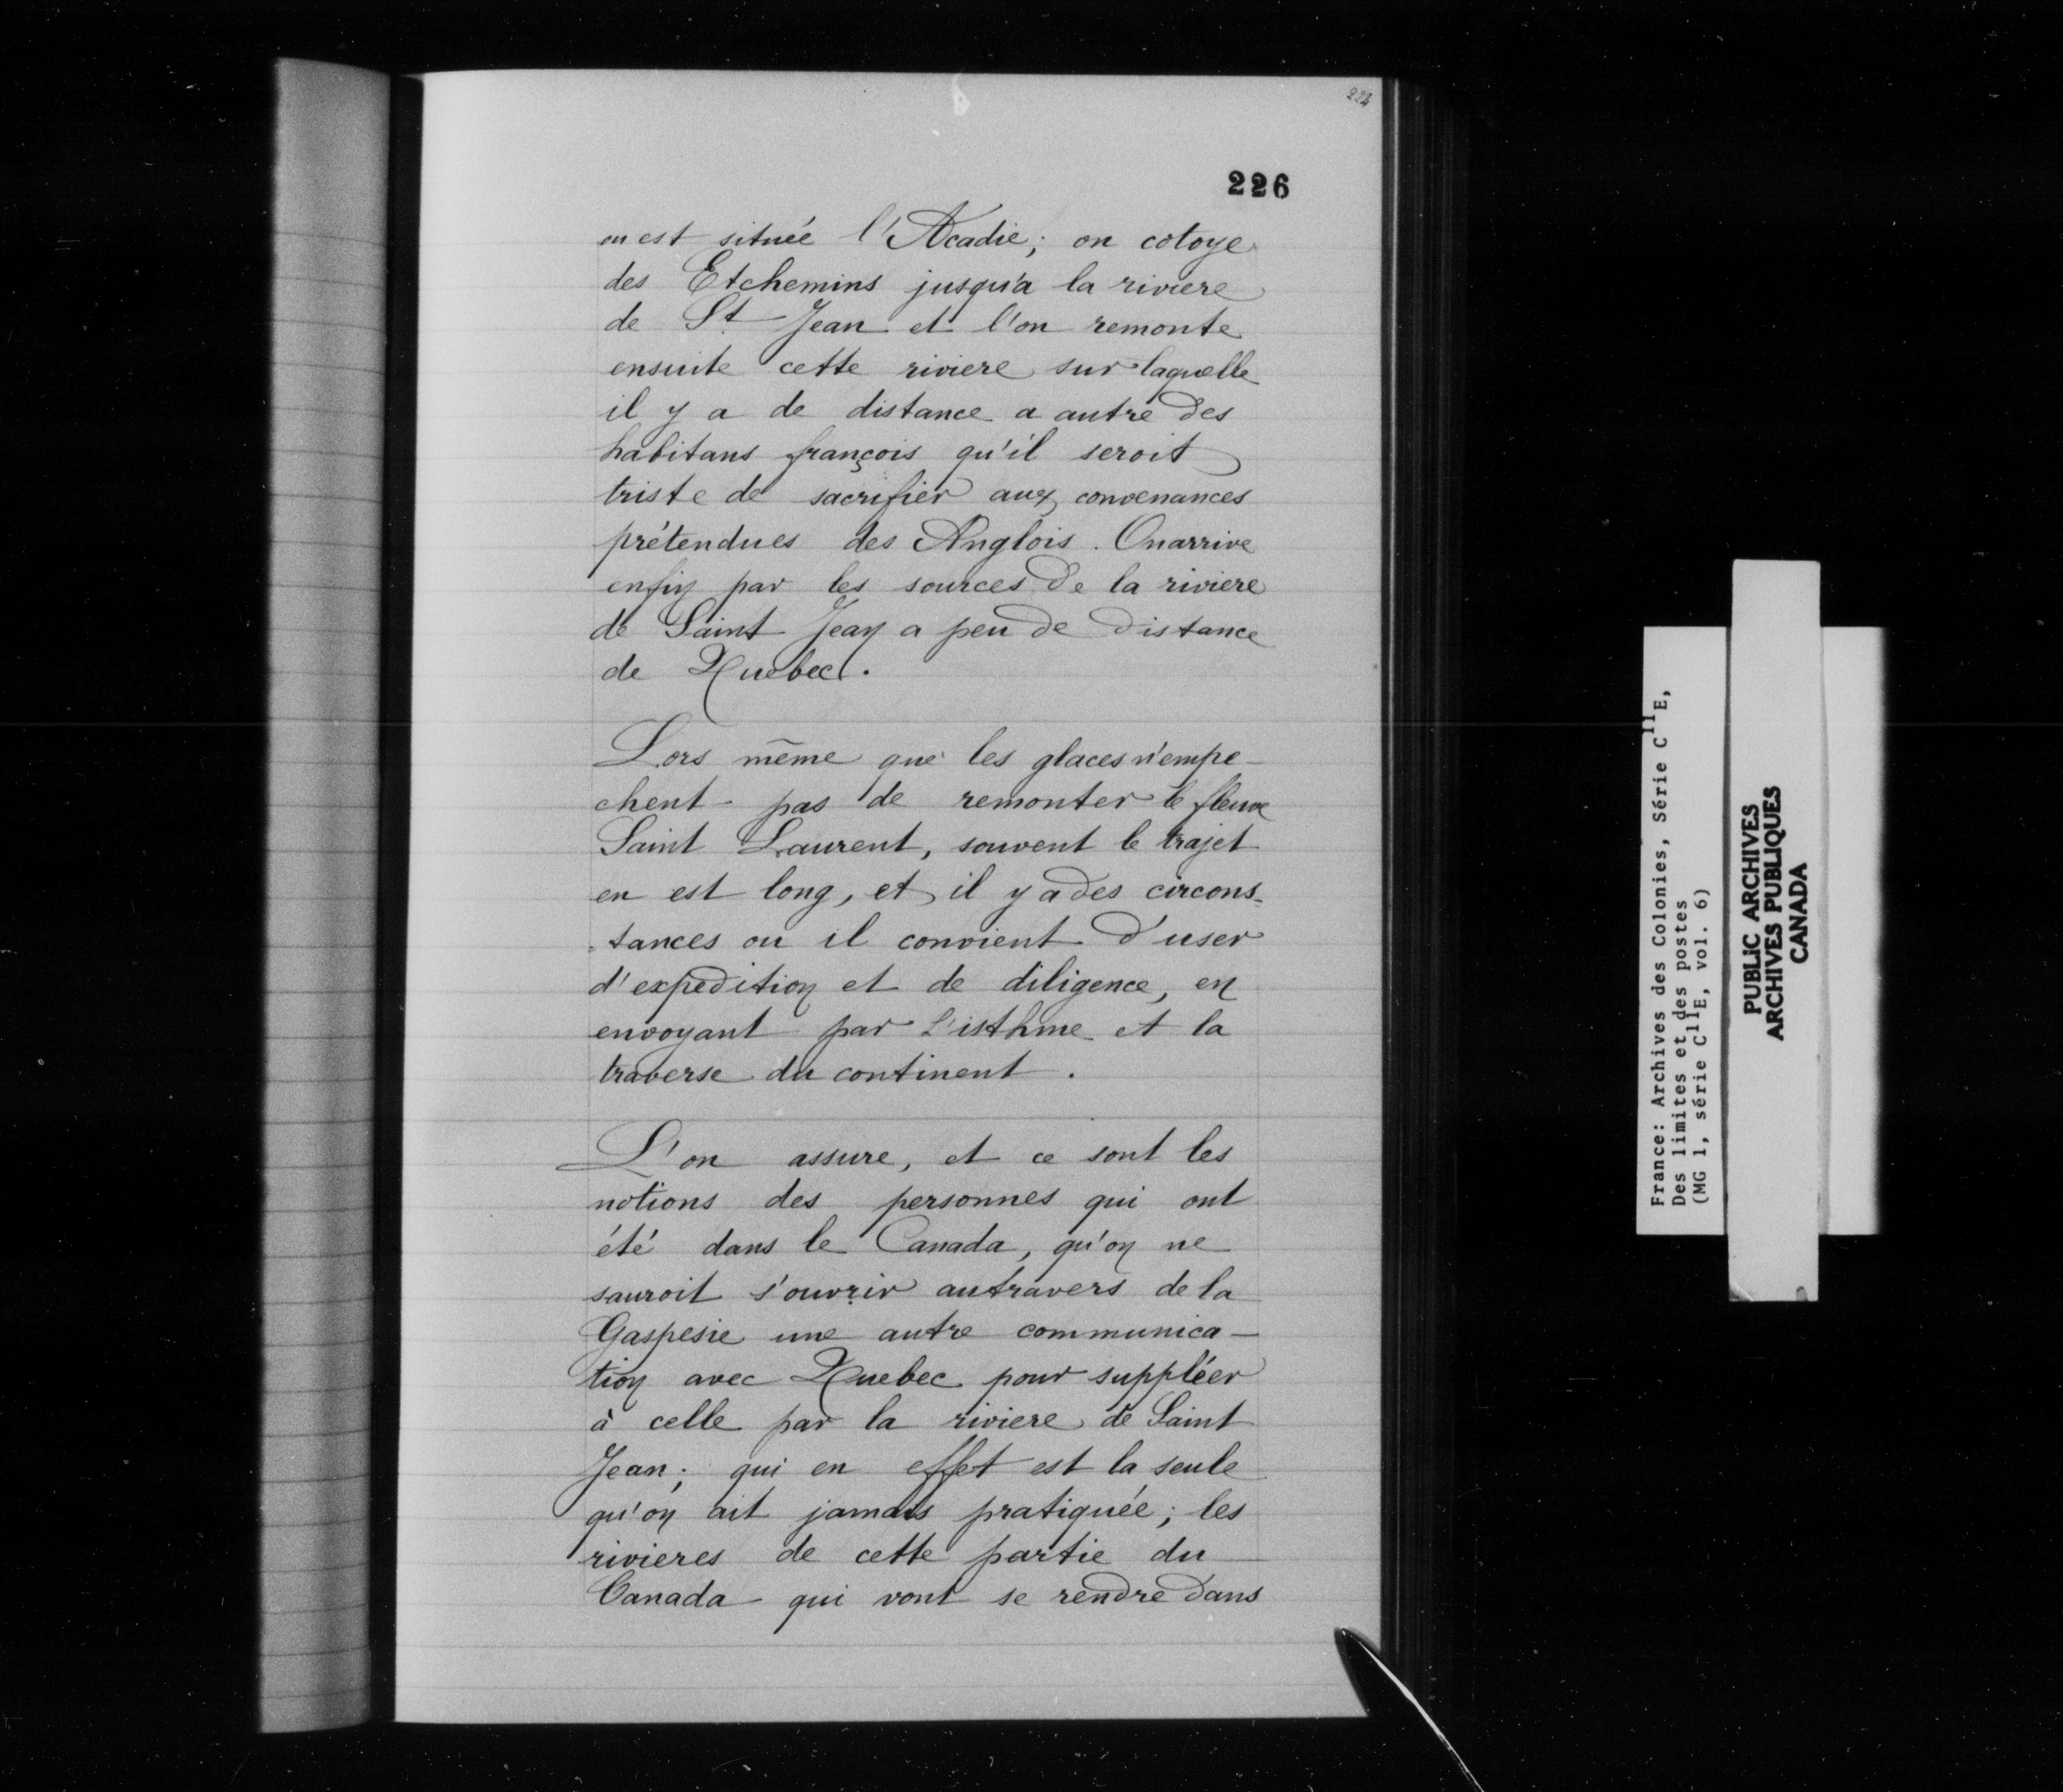 224
226
ou est située l'Acadie; on cotoye
des Etchemins jusqu'a la riviere
de St Jean et l'on remonte
ensuite cette riviere sur laquelle
il y a de distance a autre des
habitans françois qu'il seroit
triste de sacrifier aux convenances
prétendues des Anglois. On arrive
enfin par les sources de la riviere
de Saint Jean a peu de distance
de Quebec.
Lors même que les glaces n'empe-
chent pas de remonter le fleuve
Saint Laurent, souvent le trajet
en est long, et il y a des circons=
=tances ou il convient d'user
d'expedition et de diligence, en
envoyant par l'isthme et la
traverse du continent.
L'on assure, et ce sont les
notions des personnes qui ont
été dans le Canada, qu'on ne
sauroit s'ouvrir autravers de la
Gaspesie une autre communica-
tion avec Quebec pour suppléer
à celle par la riviere de Saint
Jean; qui en effet est la seule
qu'on ait jamais pratiquée; les
rivieres de cette partie du
Canada qui vont se rendre dans
France: Archives des Colonies, Série C11E,
Des limites et des postes
(MG 1, série C11E, vol. 6)
PUBLIC ARCHIVES
ARCHIVES PUBLIQUES
CANADA